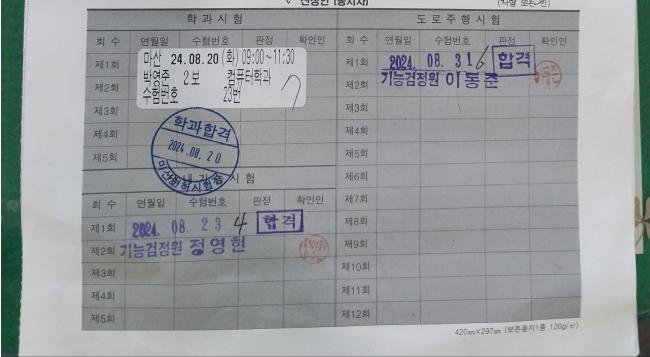 학 과 시 험
회 수 연월일 수험번호 판정 확인인
제1회
마산 24.08.20 (화) 09:00~11:30
박영준 2보 컴퓨터학과
수험번호 23번
제2회
제3회
제4회
제5회
학과합격
2024.08.20
마산운전면허시험장
내 기 능 시 험
회 수 연월일 수험번호 판정 확인인
제1회 2024. 08. 23 4 합격
제2회 기능검정원 정영현
제3회
제4회
제5회
도 로 주 행 시 험
회 수 연월일 수험번호 판정 확인인
제1회 2024. 08. 31 6 합격
제2회 기능검정원 이동준
제3회
제4회
제5회
제6회
제7회
제8회
제9회
제10회
제11회
제12회
420㎜×297㎜ (보존용지1종 120g/㎡)